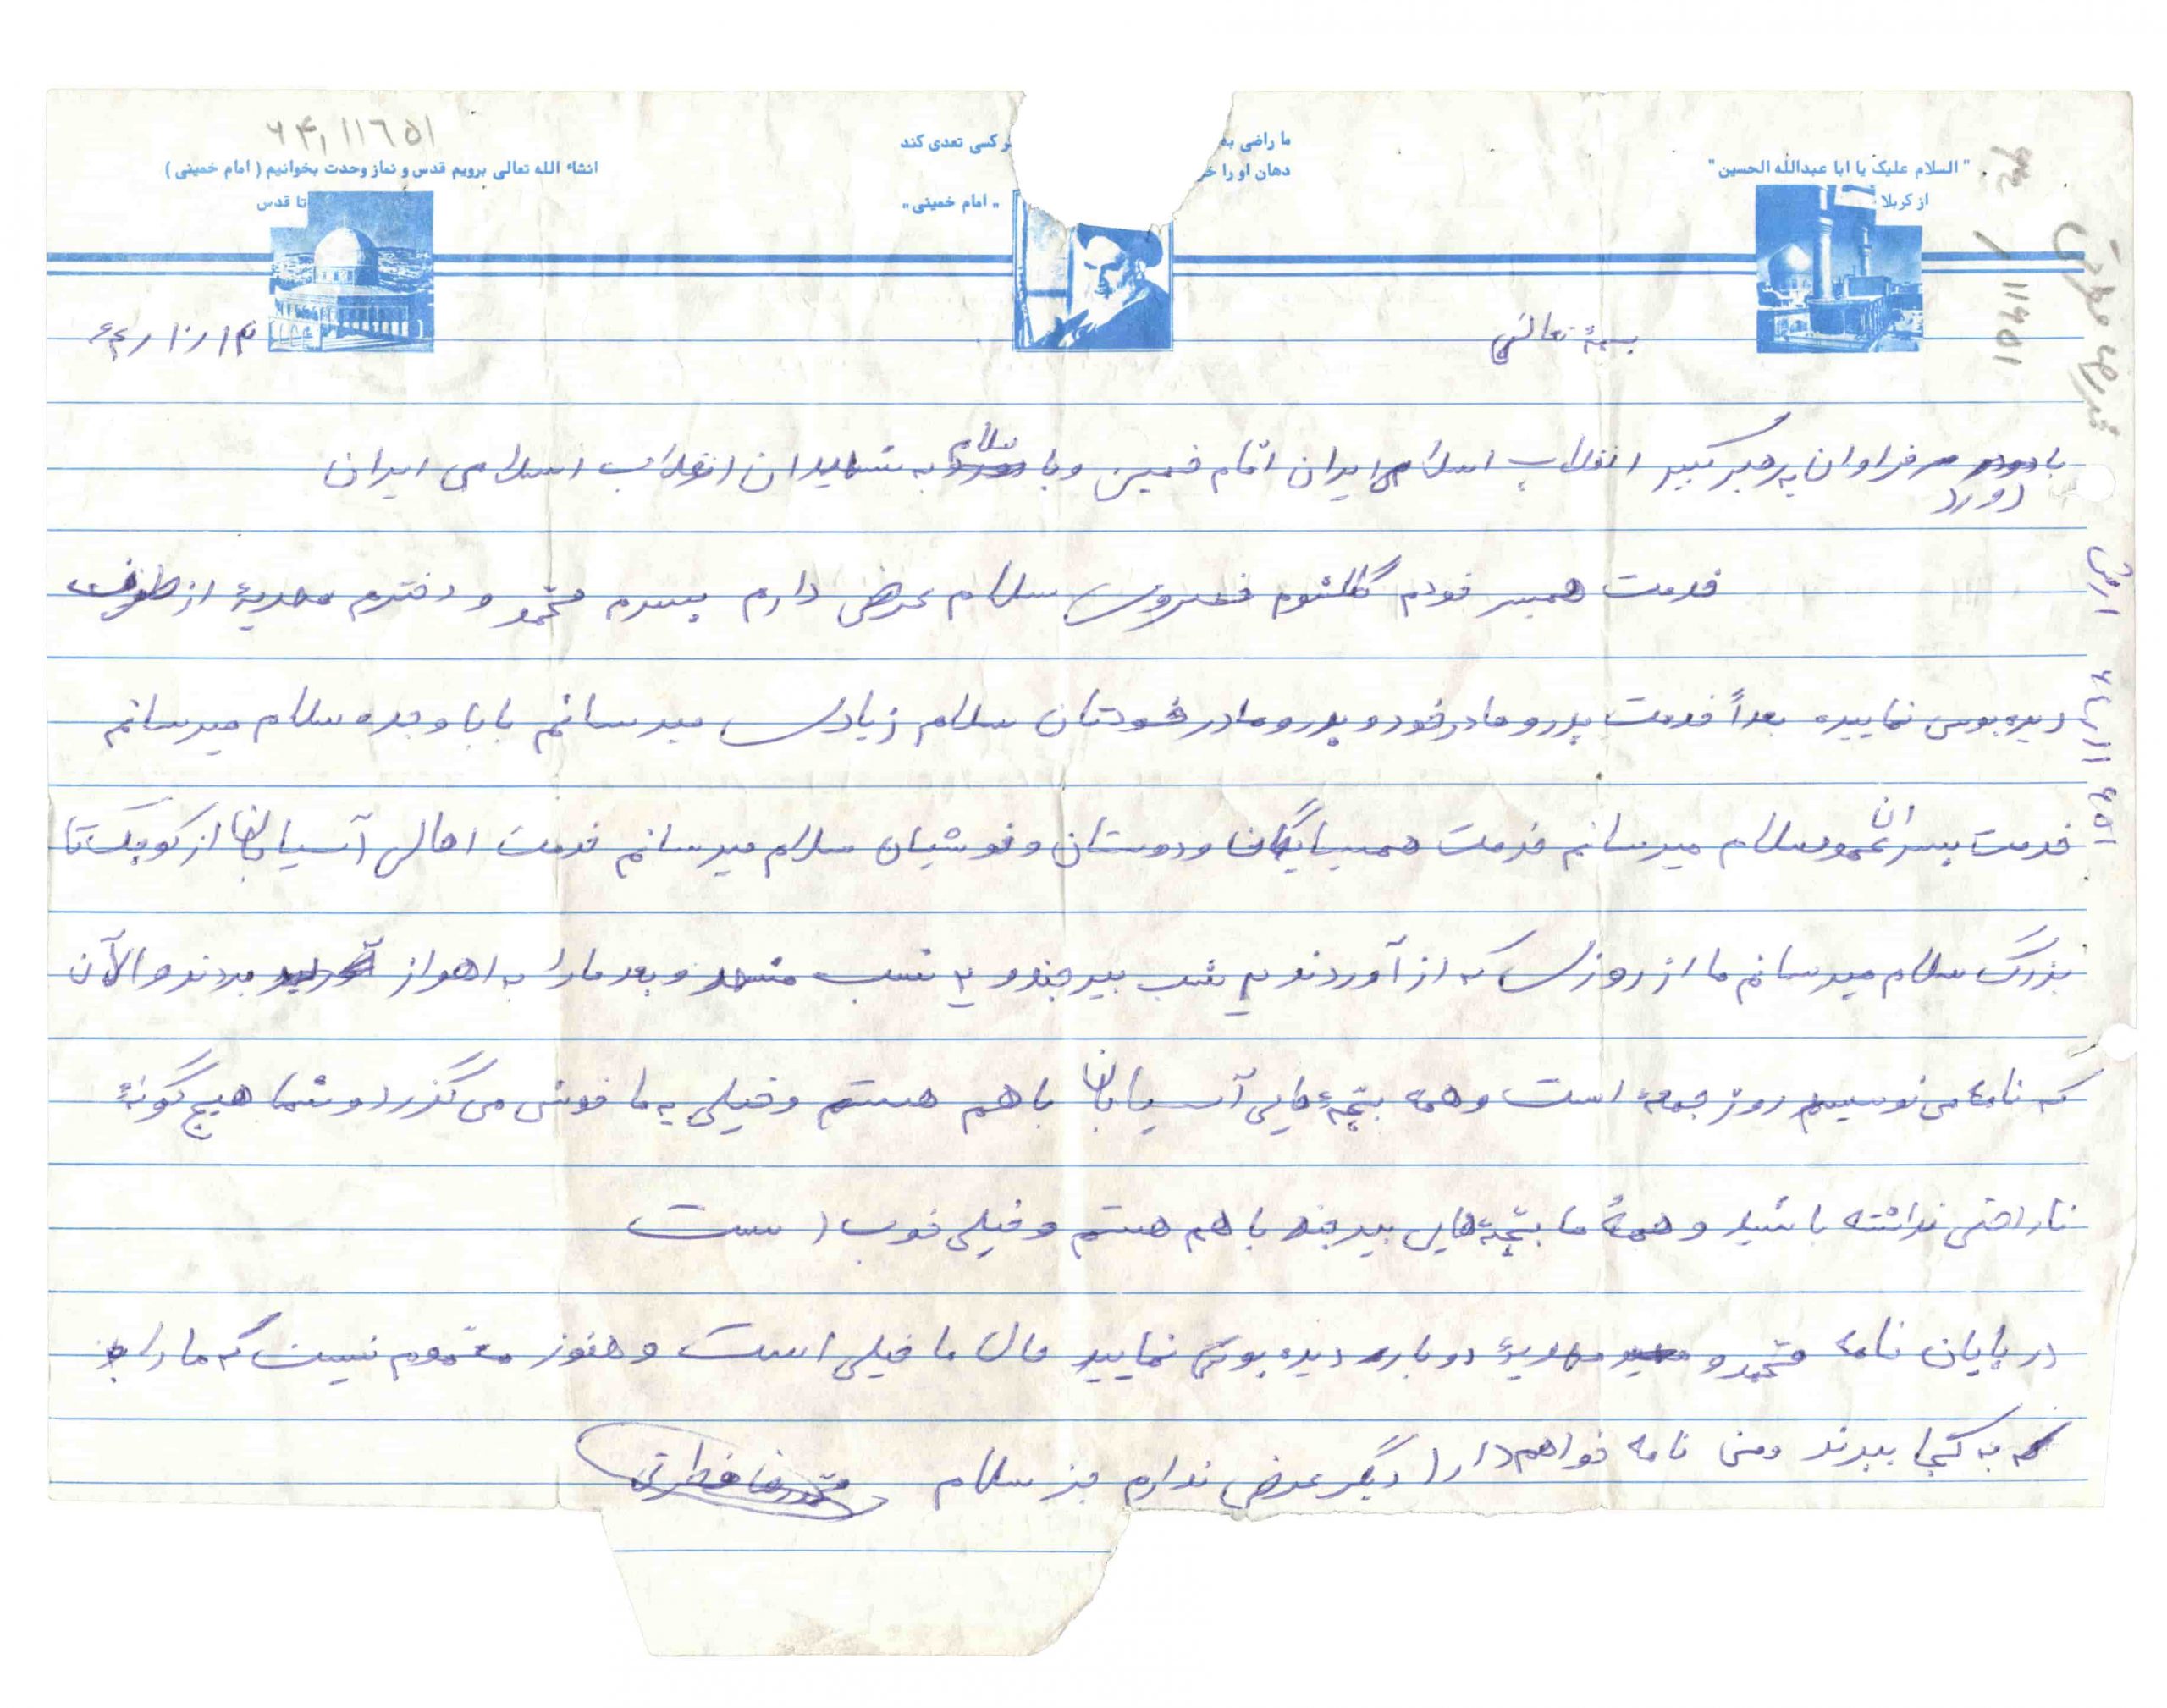 ۶۴,۱۱۶۵۱
"السلام علیک یا ابا عبدالله الحسین"
از کربلا
ما راضی به
ر کسی تعدی کند
دهان او را خر
"امام خمینی"
انشاء الله تعالی برویم قدس و نماز وحدت بخوانیم (امام خمینی)
تا قدس
بسمه تعالی
با درود فراوان به رهبر کبیر انقلاب اسلامی ایران امام خمینی و با سلام به شهیدان انقلاب اسلامی ایران
خدمت همسر خودم کلثوم خسروی سلام عرض دارم پسرم محمد و دخترم مهدیهٔ از طرف
دیده بوسی نماییده بعداً خدمت پدر و مادر خود و پدر و مادر خودتان سلام زیادی میرسانم بابا و بده سلام میرسانم
خدمت پسران عمو سلام میرسانم خدمت همسایگان و دوستان و خوشیان سلام میرسانم خدمت اهالی آسیابان از کوچک تا
بزرگ سلام میرسانم ما از روزی که از آوردند یه شب بیرجند و یه شب مشهد و بعد ما را به اهواز بردند و الآن
که نامه می نویسیم روز جمعهٔ است و همه بچهٔ هایی آسیابان با هم هستم و خیلی به ما خوش می گذرد و شما هیچ گونهٔ
ناراحتی نداشته باشید و همهٔ ما بچه هایی بیرجند با هم هستم و خیلی خوب است
در پایان نامه محمد و مهدیهٔ دوباره دیده بوسی نمایید حال ما خیلی است و هنوز معموم نیست که ما را
به کجا ببرند ومن نامه خواهم داد دیگر عرضی ندارم جز سلام